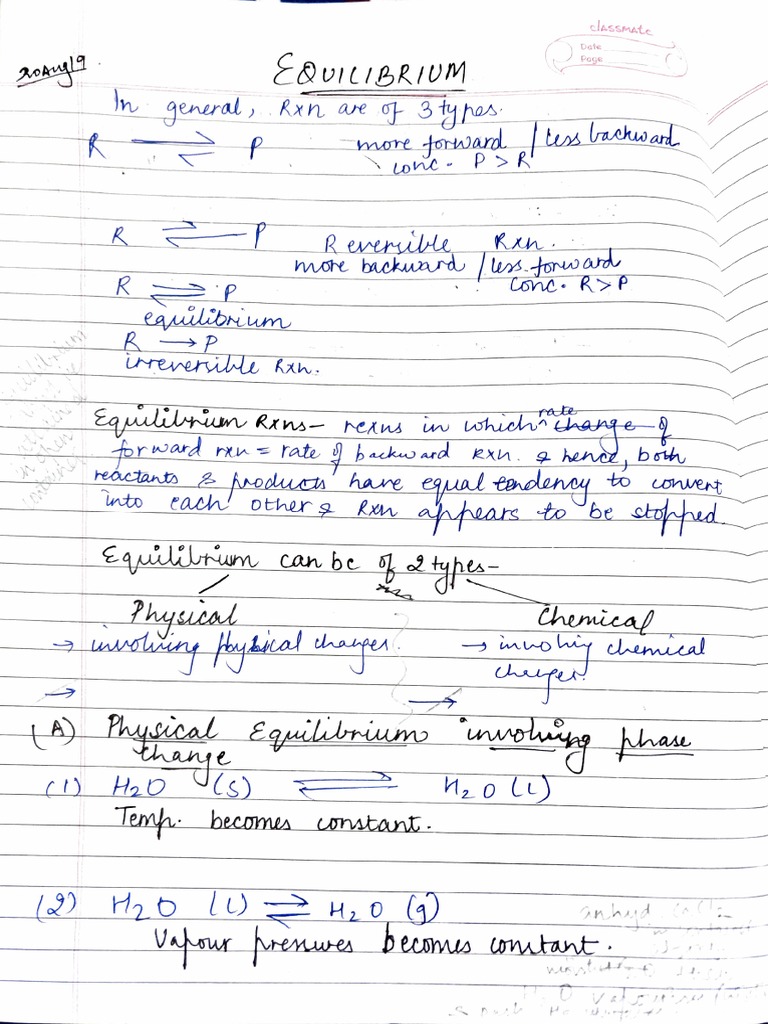 classmate
Date
Page
20Aug19
EQUILIBRIUM
In general, Rxn are of 3 types.
R ⇌ P more forward / less backward
conc. P > R
R ⇌ P Reversible Rxn.
more backward / less forward
conc. R > P
R ⇌ P
equilibrium
R → P
irreversible Rxn.
Equilibrium Rxns - rexns in which ^rate change of
forward rxn = rate of backward Rxn. & hence, both
reactants & products have equal tendency to convert
into each other & Rxn appears to be stopped.
Equilibrium can be of 2 types -
Physical Chemical
→ involving physical changes. → involving chemical
changes.
→ →
(A) Physical Equilibrium involving phase
change
(1) H2O (S) ⇌ H2O (L)
Temp. becomes constant.
(2) H2O (L) ⇌ H2O (g)
Vapour pressures becomes constant.